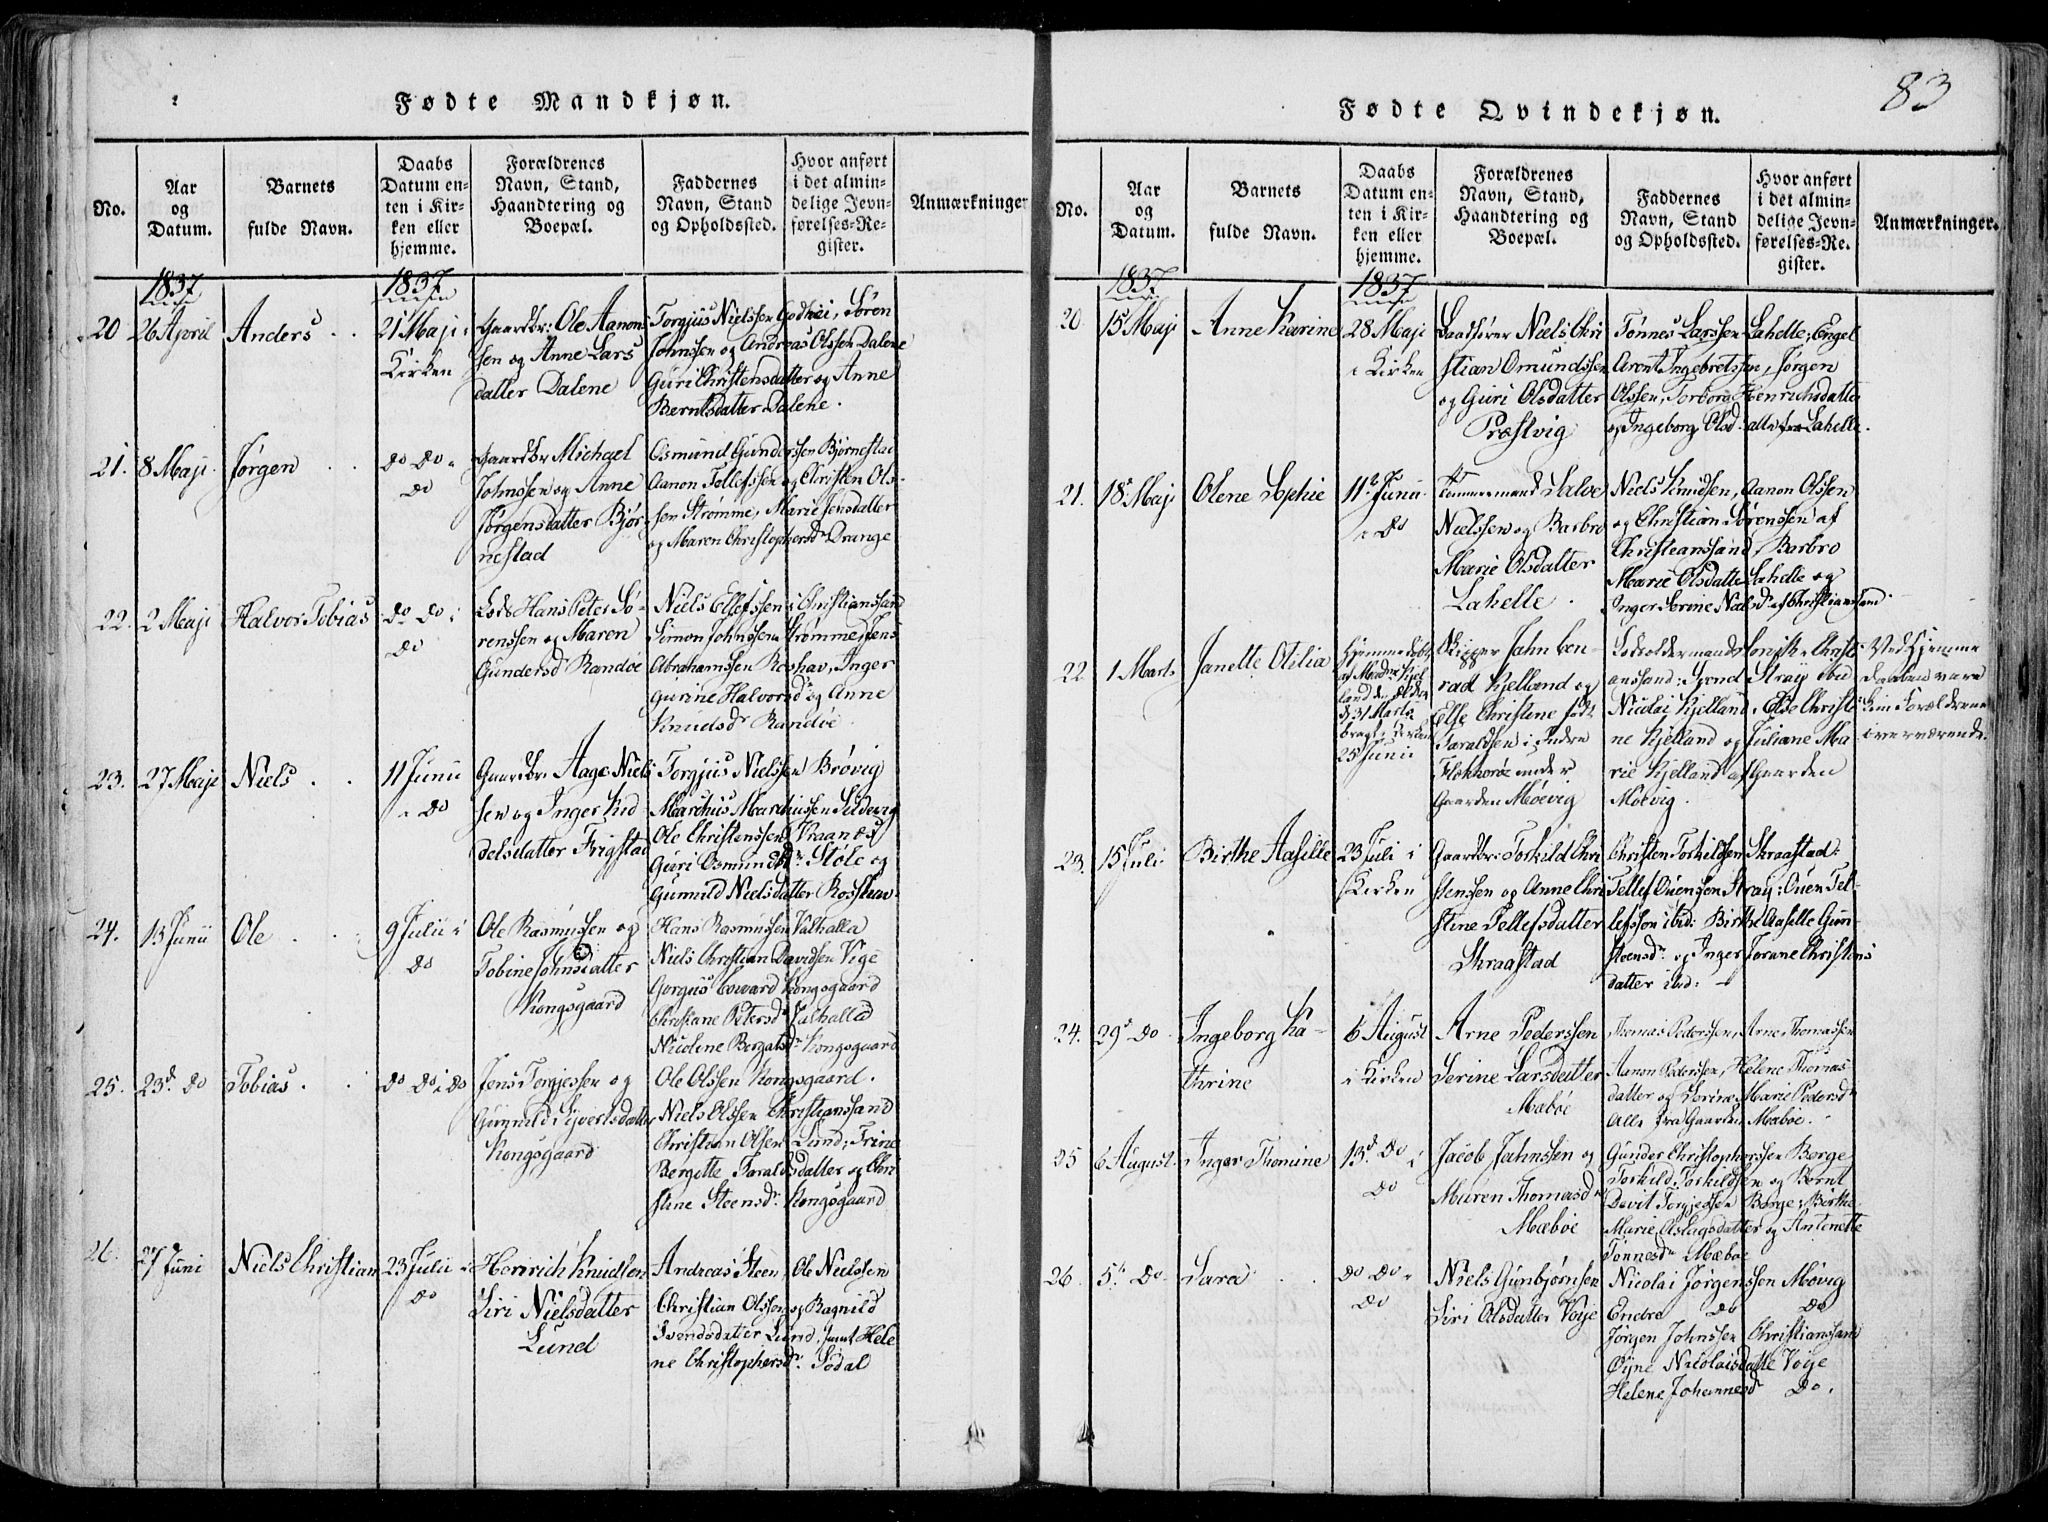 83
Fødte Mandkjøn.
No.
Aar
og
Datum.
Barnets
fulde Navn.
Daabs
Datum en-
ten i Kir-
ken eller
hjemme.
Forældrenes
Navn, Stand,
Haandtering og
Boepæl.
Faddernes
Navn, Stand
og Opholdssted.
Hvor anført
i det almin-
delige Jevn-
førelses-Re-
gister.
Anmærkninger
1837
1837
20
26 April
Anders
21 Maji i
Kirken
Gaardbr: Ole Aanon
sen og Anne Lars
datter Dalene
Torgjus Nielssen Godhei, Søren
Johnssen og Andreas Olssen Dalene
Guri Christensdatter og Anne
Berntsdatter Dalene.
21.
8 Maji
Jørgen
do do i
do
Gaardbr Michael
Johnssen og Anne
Jørgensdatter Bjør
nestad
Osmund Gunderssen Bjørnestad
Aanon Tellefssen og Christen Ols-
sen Strømme, Marie Jensdatter
og Maren Christophersdr Drange
22.
2 Maji
Halvor Tobias
do do i
do
Lods Hans Peter Sø-
renssen og Maren
Gundersd Randøe
Niels Ellefssen i Christianssand
Simon Johnssen Strømme, Jens
Abrahamssen Roshav, Inger
Gurine Halvorsdr og Anne
Knudsdr Randøe.
23.
27 Maji
Niels
11 Junii
i do
Gaardbr. Aage Niels
sen og Inger Kid
delsdatter Frigstad
Torgjus Nielssen Brøvig
Marchus Marchussen Sildevig
Ole Christenssen Kraanes
Guri Osmundsdr Støle og
Gunnild Nielsdatter Rosshav
24.
13 Junii
Ole
9 Julii i
do
Ole Rasmussen og
Tobine Johnsdatter
Kongsgaard
Hans Rasmussen Valhalla
Niels Christian Davidsen Vige
Gorgus Edward Kongsgaard
Christiane Petersd Valhalla
Nicoline Kongsgaard
25.
23d do
Tobias
do do i do
Jens Torgjessen og
Gunnild Sjvertsdatter
Kongsgaard
Ole Olssen Kongsgaard.
Niels Olssen Christianssand
Christian Olsen Lund, Trine
Bergitte Taraldsdatter og Chri
stine Steensd: Kongsgaard
26
27 Juni
Niels Christian
23 Julii i
do
Henrich Knudsen
Siri Nielsdatter
Lund
Andreas Steen, Ole Nielssen
Christian Olssen og Ragnild
Svendsdatter Lund, samt Hele
ne Christophersdr. Sødal
Fødte Qvindekjøn.
No.
Aar
og
Datum.
Barnets
fulde Navn.
Daabs
Datum en-
ten i Kir-
ken eller
hjemme.
Forældrenes
Navn, Stand,
Haandtering og
Boepæl.
Faddernes
Navn, Stand
og Opholdssted.
Hvor anført
i det almin-
delige Jevn-
førelses-Re-
gister.
Anmærkninger.
1837
1837
20
15 Maji
Anne Karine
28 Maji
i Kirken
Baadfører Niels Chri
stian Omundssen
og Guri Olsdatter
Præstvig
Tønnes Larssen Lahelle, Engel
Arent Ingebretssen, Jørgen
Olssen, Torborg Henrichsdatter
og Ingeborg Olsd. alle fra Lahelle.
21.
18 Maji
Olene Sophie
11te Junii
i do
Tømmermand Salve
Nielssen og Barbro
Marie Olsdatter
Lahelle.
Niels Knudsen, Aanon Olssen
og Christian Sørenssen af
Christianssand, Barbro
Marie Olsdatter Lahelle og
Inger Serine Nielsd. af Christianssand
22
1 Marts
Janette Otilia
Hjemmedøbt
den
d 31 Marts
bragt i Kirken
25 Junii
Skipper Jahn Con-
rad Kjelland og
Else Christine født
Taraldsen i Indre
Flekkerøe under
Gaarden Møevig
Lodsoldermand Christi-
anssand: Trond Stray ibid
Nicolai Kjelland, Else Christi
ne Kjelland og Juliane Ma
rie Kjelland af Gaarden
Møevig.
Ved Hjemme
daaben vare
kun Forældrene
overværende.
23.
15 Juli
Birthe Aasille
23 Juli i
Kirken
Gaardbr: Torkild Chri
stenssen og Anne Chri
stine Tellefsdatter
Skraastad
Christen Torkildsen Skraastad:
Tellef Ouensen Stray: Ouen Tel-
lefsson ibid: Birthe Aasille Gun-
steensdr. og Inger Torane Christens
datter ibid:
24.
29d do
Ingeborg Ka-
thrine
6 August
i Kirken
Arne Pederssen
Serine Larsdatter
Mæbøe
Thomas Pederssen, Arne Thomassen
Aanon Pederssen, Helene Thomas
datter og Serine Marie Pedersdr
Alle fra Gaarden Mæbøe.
25
6 August.
Inger Thomine
13d do i
do
Jacob Jahnssen og
Maren Thomasdr
Mæbøe
Gunder Christopherssen Berge
Torkild Torkildsen og Bernt
Devit Torgjessen Berge, Birthe
Marie Aslagsdatter og Antonette
Tønnesdr Mæbøe
26
5te do.
Sara
do do i
do
Niels Gunbjørnsen
Siri Olsdatter Voje
Nicolai Jørgenssen Møvig
Endre do do
Jørgen Johnssen Christianssand
Øyne Nicolaisdatte Voje
Helene Johannesd do.